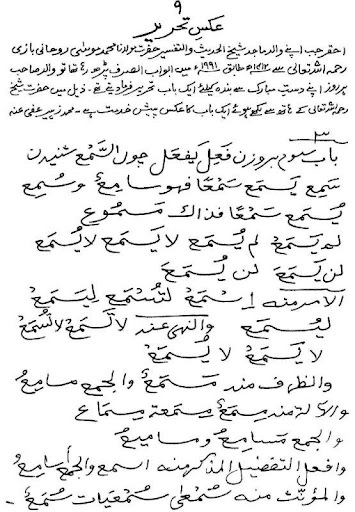 ۹
عکس تحریر
احقر جب اپنے والد ماجد شیخ الحدیث والتفسیر حضرت مولانا محمد موسیٰ روحانی بازی
رحمہ اللہ تعالیٰ سے ۱۴۱۲ھ مطابق ۱۹۹۱ء میں ابواب الصرف پڑھ رہا تھا تو والد صاحب
ہر روز اپنے دست مبارک سے بندہ کیلئے ایک باب تحریر فرما دیتے تھے۔ ذیل میں حضرت شیخ
رحمہ اللہ تعالیٰ کے ہاتھ سے لکھے ہوئے ایک باب کا عکس پیش خدمت ہے۔ محمد زہیر عفی عنہ
۳
باب سوم بروزن فَعِلَ یَفعَل چوں السَّمْع شنیدن
سَمِعَ یَسمَعُ سَمْعًا فهو سامِعٌ وسُمِعَ
یُسمَعُ سَمْعًا فذاك مَسمُوع
لم یَسمَعْ لم یُسمَعْ لا یَسمَعُ لا یُسمَعُ
لن یَسمَعَ لن یُسمَعَ
الامر منه اِسْمَعْ لتُسْمَعْ لِیَسمَعْ
لیُسمَعْ والنهی عنه لا تَسمَعْ لا تُسمَعْ
لا یَسمَعْ لا یُسمَعْ
والظرف منه مَسمَعٌ والجمع مسامِعُ
والآلة منه مِسمَعٌ مِسمَعة مِسمَاع
والجمع مَسامِعُ ومسامیعُ
وافعل التفضیل المذکر منه اسمع والجمع اسامِعُ
والمؤنّث منه سُمْعٰی سُمْعَیات سُمَعٌ۔